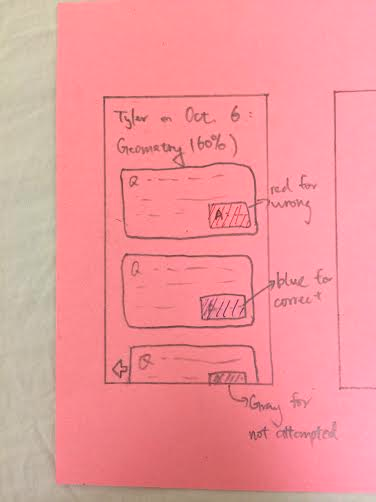 Tyler on Oct. 6 :
Geometry (60%)
Q
A
red for
wrong
Q
blue for
correct
Q
Gray for
not attempted